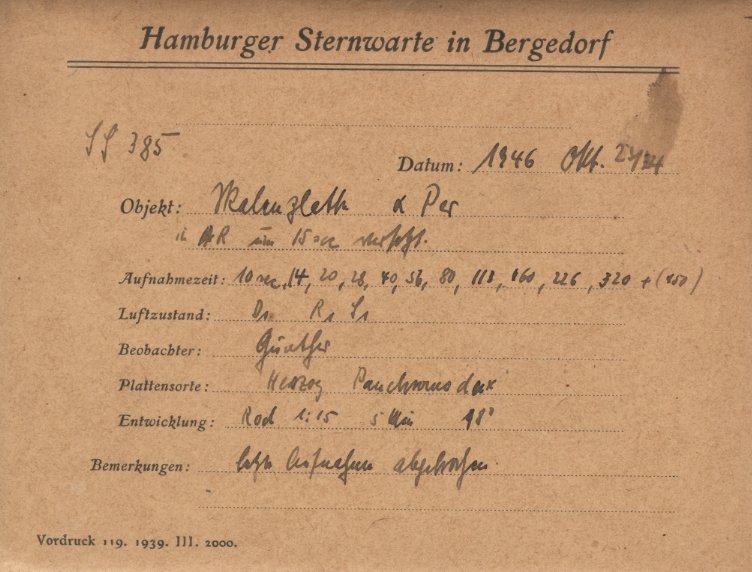 Hamburger Sternwarte in Bergedorf
SS 385
Datum: 1946 Okt. 23/24
Objekt: Skalenplatte α Per
in AR um 15 sec versetzt.
Aufnahmezeit: 10 sec, 14, 20, 28, 40, 56, 80, 113, 160, 226, 320 + (450)
Luftzustand:
Beobachter: Günther
Plattensorte: Herzog Panchromodux
Entwicklung: Rod 1:15 5 Min 18°
Bemerkungen: letzte Aufnahme abgebrochen.
Vordruck 119. 1939. III. 2000.